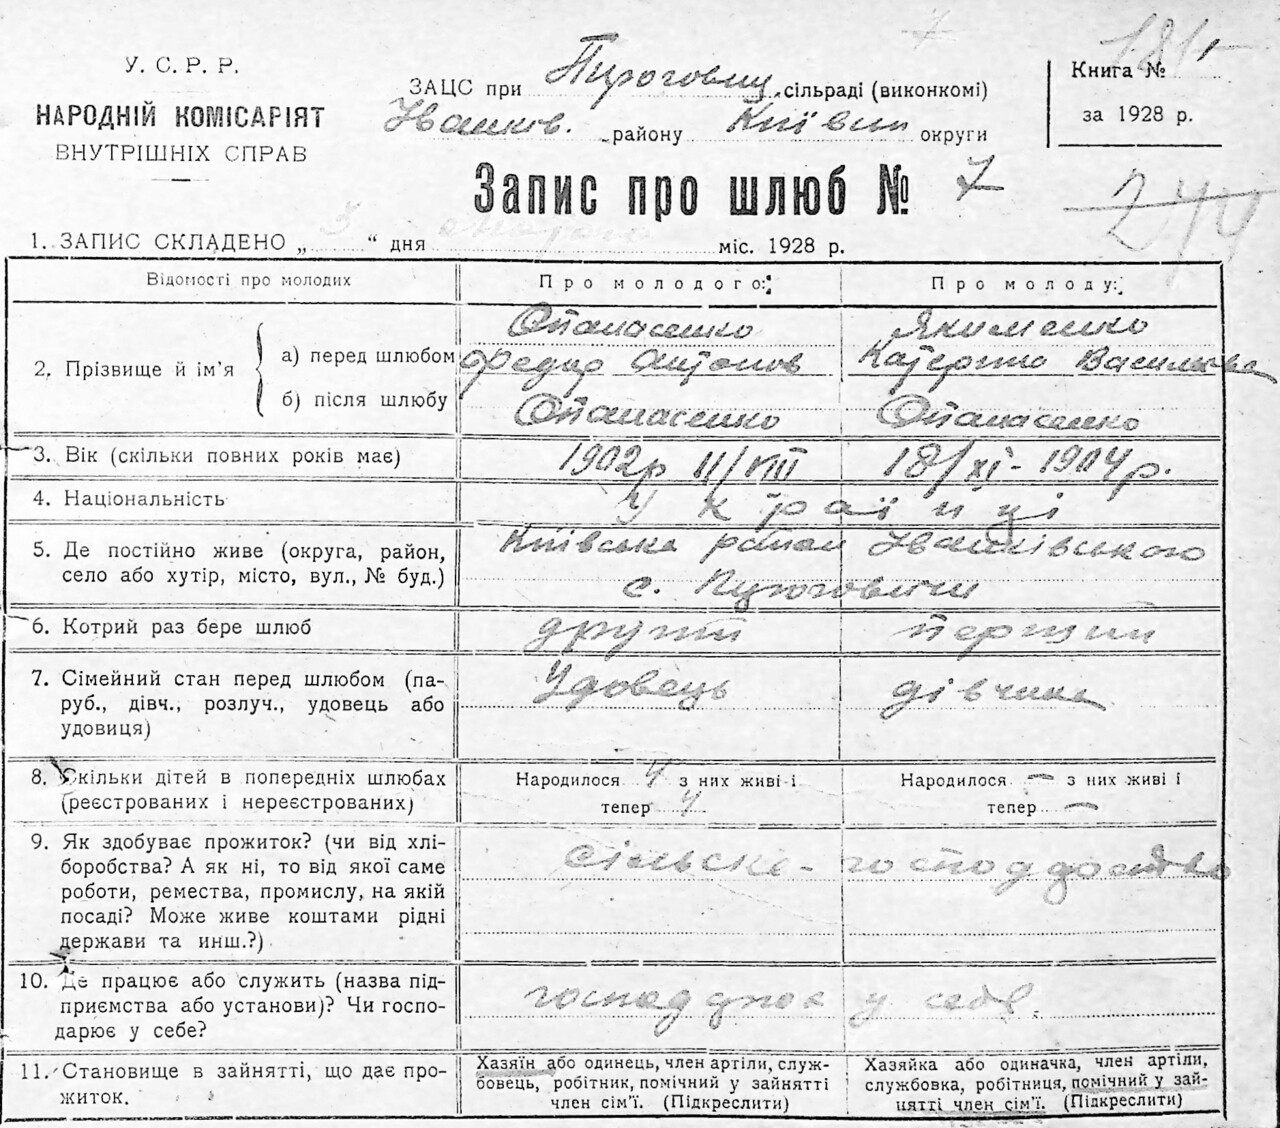 У. С. Р. Р.
НАРОДНІЙ КОМІСАРІЯТ
ВНУТРІШНІХ СПРАВ
ЗАЦС при Пирогович. сільраді (виконкомі)
Іванков. району Київськ округи
Книга №
за 1928 р.
Запис про шлюб № 7
244
1. ЗАПИС СКЛАДЕНО „ 3 “ дня міс. 1928 р.
Відомості про молодих
Про молодого:
Про молоду:
2. Прізвище й ім’я
а) перед шлюбом
Опанасенко
Федір Антонов
Якименко
Катерина Васильєва
б) після шлюбу
Опанасенко
Опанасенко
3. Вік (скільки повних років має)
1902р 11/VIII
18/XI - 1904 р.
4. Національність
Українці
5. Де постійно живе (округа, район,
село або хутір, місто, вул., № буд.)
Київська район Іванківського
с. Пироговичи
6. Котрий раз бере шлюб
другий
перший
7. Сімейний стан перед шлюбом (па-
руб., дівч., розлуч., удовець або
удовиця)
Удовець
дівчина
8. Скільки дітей в попередніх шлюбах
(реєстрованих і нереєстрованих)
Народилося 4 з них живі і
тепер 4
Народилося — з них живі і
тепер —
9. Як здобуває прожиток? (чи від хлі-
боробства? А як ні, то від якої саме
роботи, ремества, промислу, на якій
посаді? Може живе коштами рідні
держави та инш.?)
сільске-господарство
10. Де працює або служить (назва під-
приємства або установи)? Чи госпо-
дарює у себе?
у себе
11. Становище в зайнятті, що дає про-
житок.
Хазяїн або одинець, член артіли, служ-
бовець, робітник, помічний у зайнятті
член сім’ї. (Підкреслити)
Хазяйка або одиначка, член артіли,
службовка, робітниця, помічний у зай-
нятті член сім’ї. (Підкреслити)